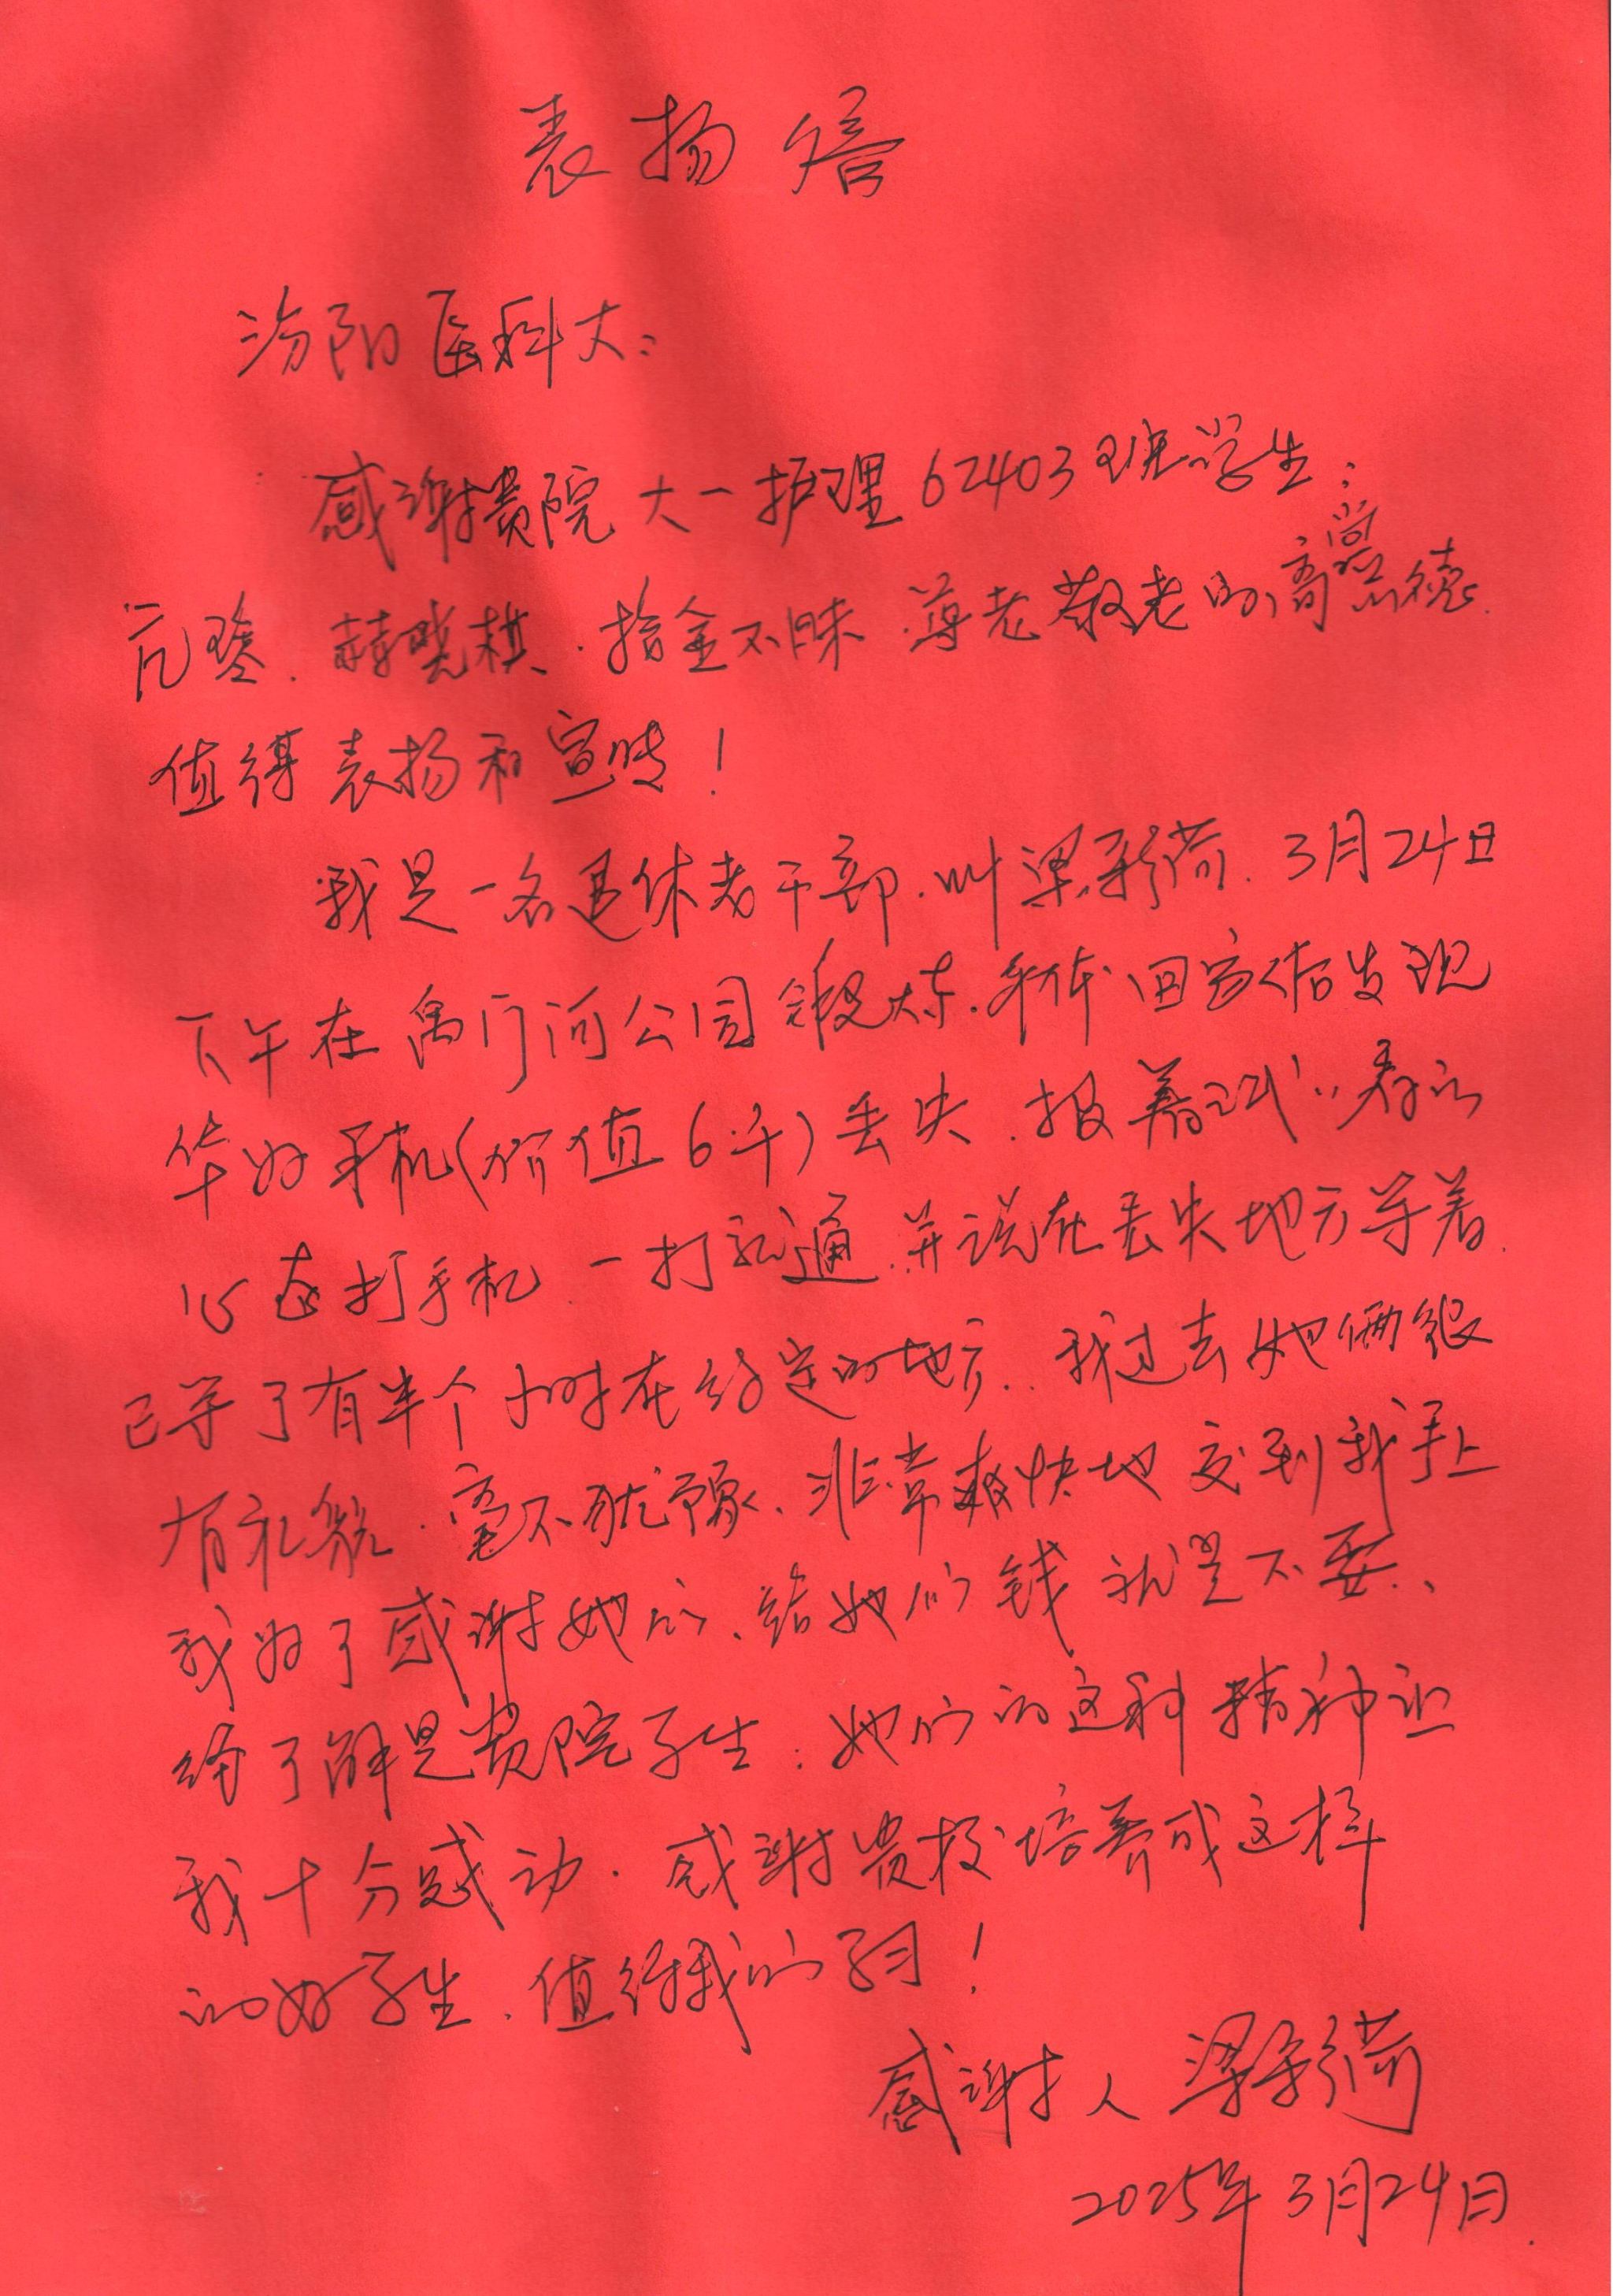 表扬信
汾阳医科大:
感谢贵院大一护理62403班学生:
亢璎、赫晓棋、拾金不昧、尊老敬老的高尚品德
值得表扬和宣传!
我是一名退休老干部.叫梁彩荷.3月24日
下午在禹门河公园锻炼身体回家后发现
华为手机(价值6千)丢失.报着试试看的
心态打手机一打就通.并说在丢失地方等着.
已等了有半个小时在约定的地方.我过去她俩很
有礼貌.毫不犹豫、非常爽快地交到我手上
我为了感谢她们、给她们钱就是不要、
经了解是贵院学生.她们的这种精神让
我十分感动.感谢贵校培养成这样
的好学生、值得我们学习!
感谢人 梁彩荷
2025年3月24日.